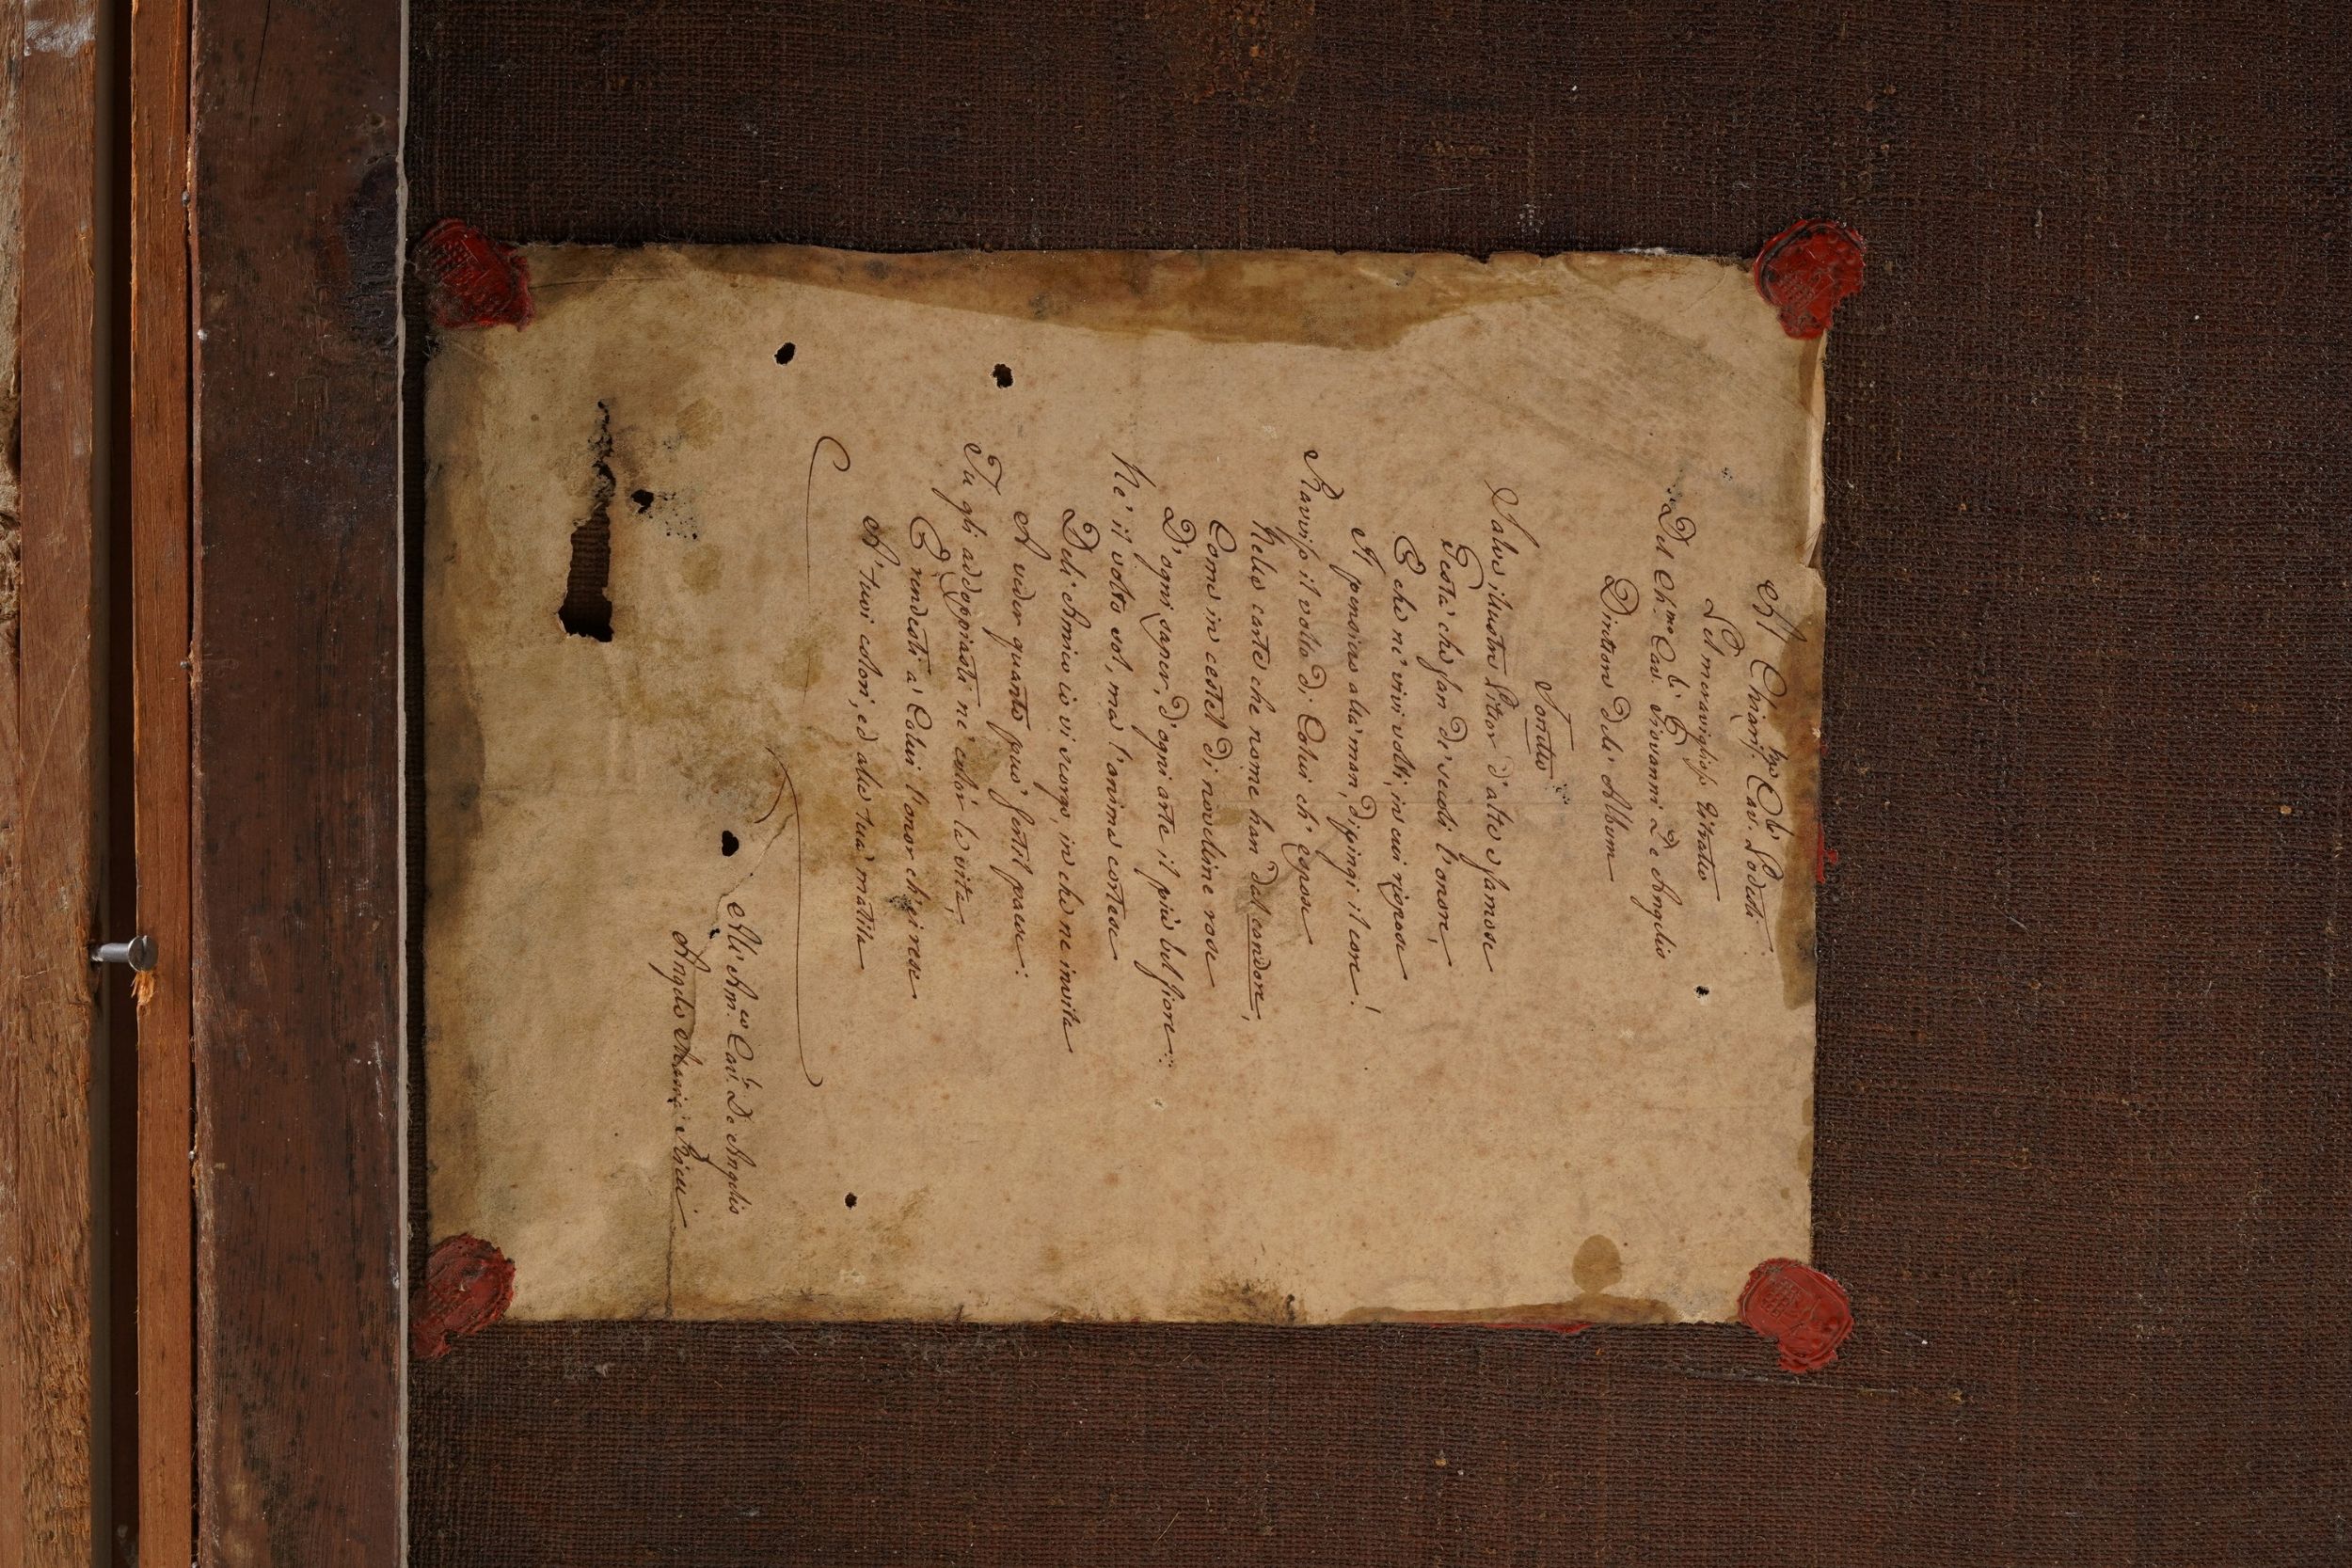 Al Chiariss.mo Cav. Podesti
Pel meraviglioso Ritratto
Del Ch.mo Cav.e Giovanni De Angelis
Direttore dell' Album
Sonetto
Salve illustre Pittor d'alte e famose
Gesta che fan de' secoli l'onore,
E che ne' vivi volti, in cui ripose
Il pensier alla man, dipingi il core!
Ravviso il volto di Colui ch' espose
Nelle carte che nome han dal condore,
Come in cestel di novelline rose
D'ogni saper, d'ogni arte il più bel fiore:
Nè il volto sol, ma l'anima cortese
Dell' Amico io vi scorgo, in che ne invita
A veder quanto può fertil paese:
Tu gli addoppiasti ne' color la vita,
E rendesti a Colui l'onor ch' ei rese
A' tuoi colori, ed alla tua matita
All' Am.co Cav.e De Angelis
Angelo Maria Ricci